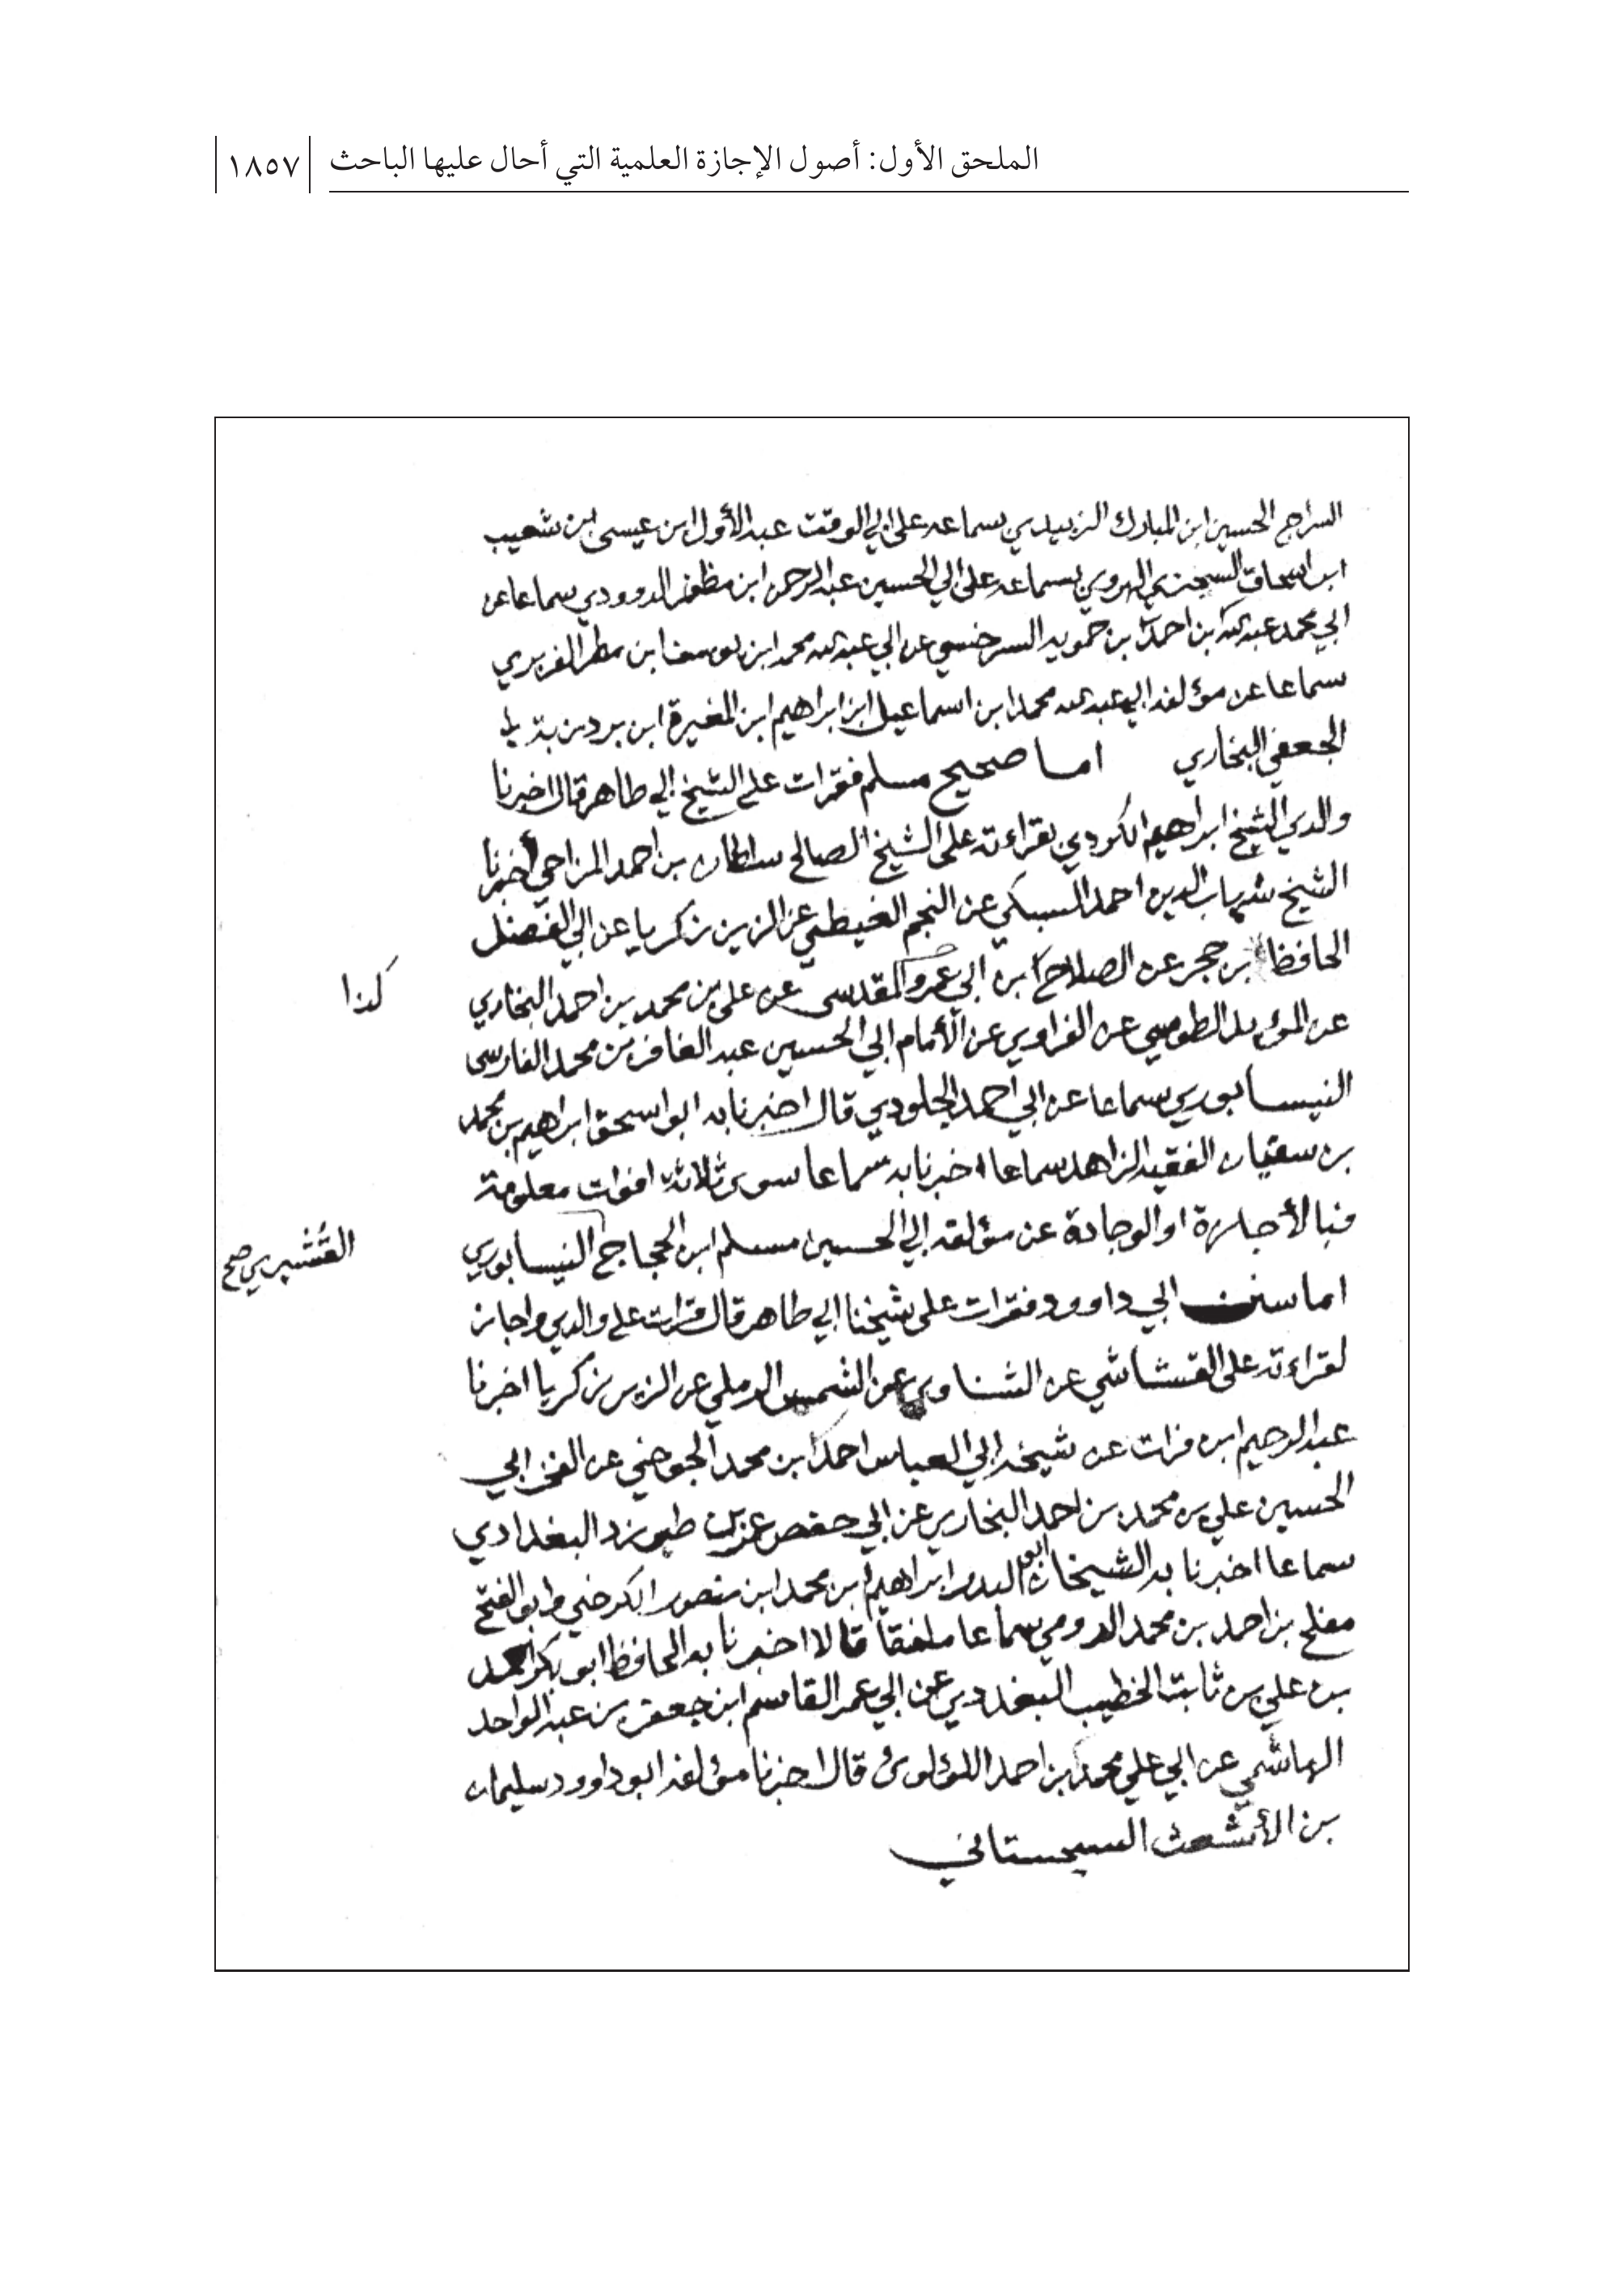 الملحق الأول: أصول الإجازة العلمية التي أحال عليها الباحث
١٨٥٧
السراج الحسين ابن المبارك الزبيدي بسماعه على ابي الوقت عبد الأول ابن عيسى ابن شعيب
ابن اسحاق السجزي الهروي بسماعه على ابي الحسين عبد الرحمن ابن مظفر الدوودي سماعا عن
ابي محمد عبد الله بن احمد بن حمويه السرخسي عن ابي عبد الله محمد ابن يوسف ابن مطر الفربري
سماعا عن مؤلفه ابي عبد الله محمد ابن اسماعيل ابن ابراهيم ابن المغيرة ابن بردزبة
الجعفي البخاري اما صحيح مسلم فقرات على الشيخ ابي طاهر قال اخبرنا
والدي الشيخ ابراهيم الكردي بقراءته على الشيخ الصالح سلطان بن احمد المزاحي أخبرنا
الشيخ شهاب الدين احمد السبكي عن النجم الغيطي عن الزين زكريا عن ابي الفضل
الحافظ ابن حجر عن الصلاح ابن ابي عمرو المقدسي عن علي بن محمد بن احمد البخاري
كذا
عن المؤيد الطوسي عن الفراوي عن الأمام ابي الحسين عبد الغافر بن محمد الفارسي
النيسابوري سماعا عن ابي احمد الجلودي قال اخبرنا به ابو اسحق ابراهيم بن محمد
بن سفيان الفقيه الزاهد سماعا اخبرنا به سماعا سوى ثلاثة افوات معلومة
فبالأجازة او الوجادة عن مؤلفه ابي الحسين مسلم ابن الحجاج النيسابوري
القُشَيري صح
اما سنن ابي داوود فقرات على شيخنا ابي طاهر قال قرات على والدي واجاز
لقراءته على القشاشي عن الشناوي عن الشمس الرملي عن الزين زكريا اخبرنا
عبد الرحيم ابن فرات عن شيخه ابي العباس احمد ابن محمد الجوخي عن الفخر ابي
الحسين علي بن محمد بن احمد البخاري عن ابي حفص عمر بن طبرزد البغدادي
سماعا اخبرنا به الشيخان ابو البدر ابراهيم ابن محمد ابن منصور الكرخي وابو الفتح
مفلح بن احمد بن محمد الدومي سماعا ملفقا قالا اخبرنا به الحافظ ابو بكر احمد
بن علي بن ثابت الخطيب البغددي عن ابي عمر القاسم ابن جعفر بن عبد الواحد
الهاشمي عن ابي علي محمد ابن احمد اللؤلوئ قال اخبرنا مؤلفه ابو داوود سليمان
بن الأشعث السيجستاني